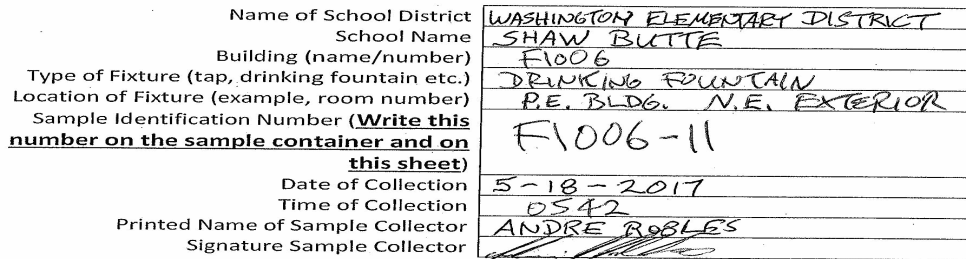 Name of School District WASHINGTON ELEMENTARY DISTRICT
School Name SHAW BUTTE
Building (name/number) F1006
Type of Fixture (tap, drinking fountain etc.) DRINKING FOUNTAIN
Location of Fixture (example, room number) P.E. BLDG. N.E. EXTERIOR
Sample Identification Number (Write this
number on the sample container and on
this sheet) F1006-11
Date of Collection 5-18-2017
Time of Collection 0542
Printed Name of Sample Collector ANDRE ROBLES
Signature Sample Collector